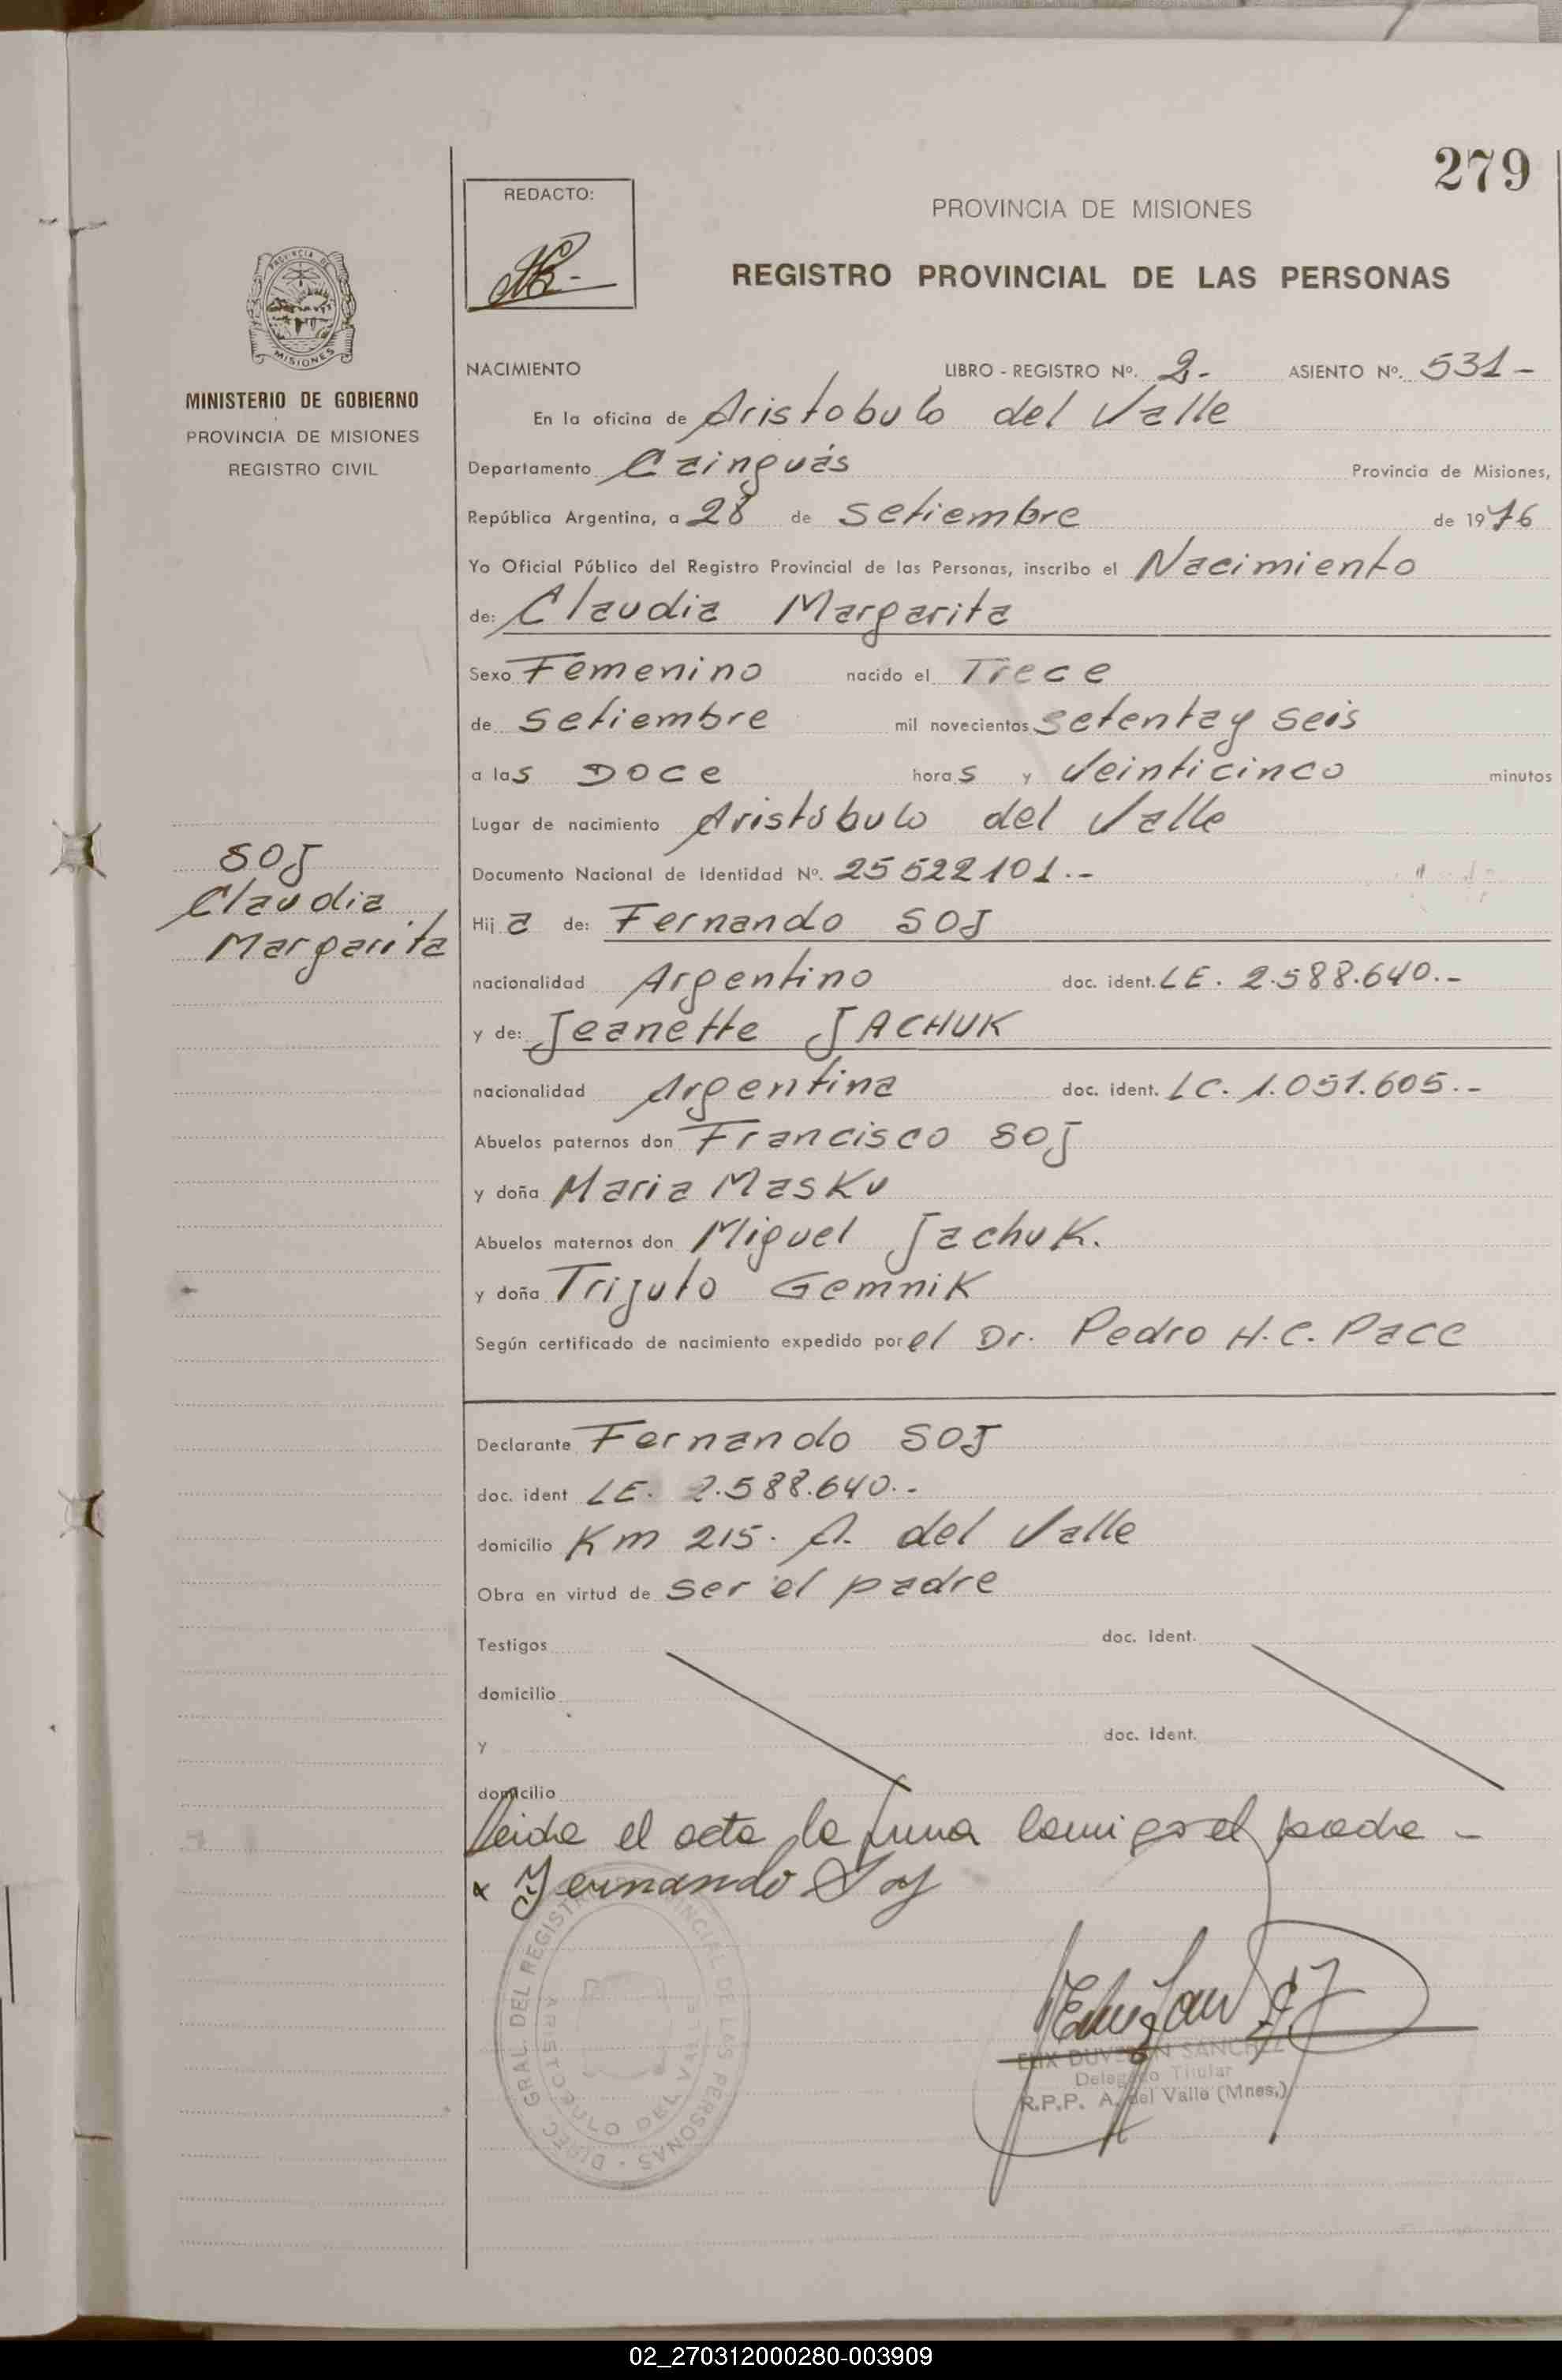 279
REDACTO:
PROVINCIA DE MISIONES
REGISTRO PROVINCIAL DE LAS PERSONAS
MISIONES
MINISTERIO DE GOBIERNO
PROVINCIA DE MISIONES
REGISTRO CIVIL
SOJ
Claudia
Margarita
NACIMIENTO LIBRO - REGISTRO Nº. 2.- ASIENTO Nº. 531-
En la oficina de Aristobulo del Valle
Departamento Cainguás Provincia de Misiones,
República Argentina, a 28 de setiembre de 1976
Yo Oficial Público del Registro Provincial de las Personas, inscribo el Nacimiento
de: Claudia Margarita
Sexo Femenino nacido el Trece
de setiembre mil novecientos setenta y seis
a las DOCe horas y Veinticinco minutos
Lugar de nacimiento Aristóbulo del Valle
Documento Nacional de Identidad Nº. 25522101.-
Hija de: Fernando SOJ
nacionalidad Argentino doc. ident. LE. 2.588.640.-
y de: Jeanette JACHUK
nacionalidad Argentina doc. ident. LC. 1.051.605.-
Abuelos paternos don Francisco SOJ
y doña Maria Masku
Abuelos maternos don Miguel Jachuk.
y doña Trijuto Gemnik
Según certificado de nacimiento expedido por el Dr. Pedro H.C. Pace
Declarante Fernando SOJ
doc. ident LE. 2.588.640.-
domicilio Km 215. A. del Valle
Obra en virtud de ser el padre
Testigos doc. Ident.
domicilio
y doc. Ident.
domicilio
Leida el acta la firma conmigo el padre -
x Fernando Soj
DIREC. GRAL. DEL REGISTRO PROVINCIAL DE LAS PERSONAS
ARISTOBULO DEL VALLE
SANCHEZ
Delegado Titular
R.P.P. A. del Valle (Mnes.)
02_270312000280-003909